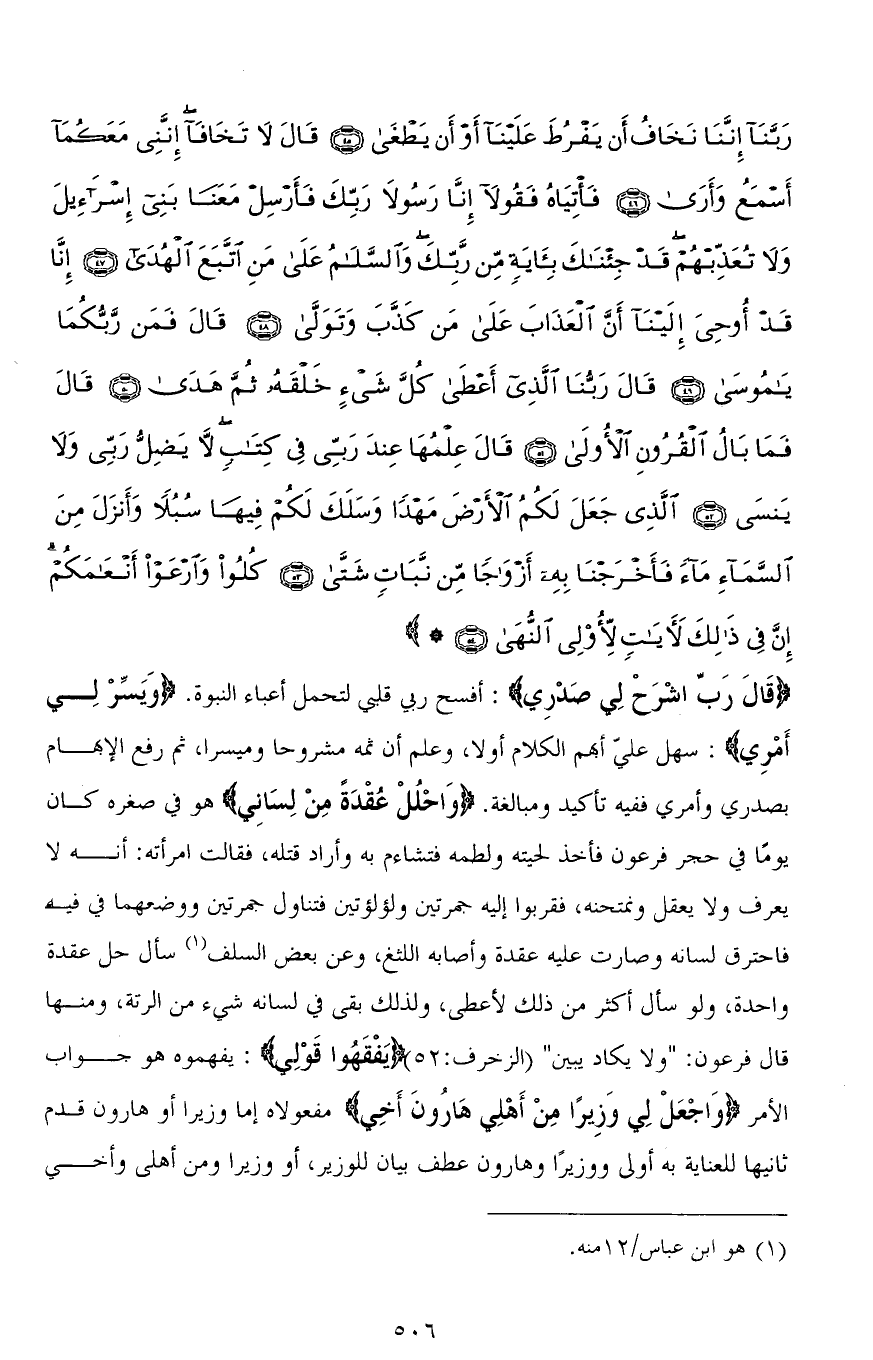 رَبَّنَآ إِنَّنَا نَخَافُ أَن يَفْرُطَ عَلَيْنَآ أَوْ أَن يَطْغَىٰ ﴿٤٥﴾ قَالَ لَا تَخَافَآ ۖ إِنَّنِى مَعَكُمَآ
أَسْمَعُ وَأَرَىٰ ﴿٤٦﴾ فَأْتِيَاهُ فَقُولَآ إِنَّا رَسُولَا رَبِّكَ فَأَرْسِلْ مَعَنَا بَنِىٓ إِسْرَٰٓءِيلَ
وَلَا تُعَذِّبْهُمْ ۖ قَدْ جِئْنَٰكَ بِـَٔايَةٍ مِّن رَّبِّكَ ۖ وَٱلسَّلَٰمُ عَلَىٰ مَنِ ٱتَّبَعَ ٱلْهُدَىٰٓ ﴿٤٧﴾ إِنَّا
قَدْ أُوحِىَ إِلَيْنَآ أَنَّ ٱلْعَذَابَ عَلَىٰ مَن كَذَّبَ وَتَوَلَّىٰ ﴿٤٨﴾ قَالَ فَمَن رَّبُّكُمَا
يَٰمُوسَىٰ ﴿٤٩﴾ قَالَ رَبُّنَا ٱلَّذِىٓ أَعْطَىٰ كُلَّ شَىْءٍ خَلْقَهُۥ ثُمَّ هَدَىٰ ﴿٥٠﴾ قَالَ
فَمَا بَالُ ٱلْقُرُونِ ٱلْأُولَىٰ ﴿٥١﴾ قَالَ عِلْمُهَا عِندَ رَبِّى فِى كِتَٰبٍ ۖ لَّا يَضِلُّ رَبِّى وَلَا
يَنسَى ﴿٥٢﴾ ٱلَّذِى جَعَلَ لَكُمُ ٱلْأَرْضَ مَهْدًا وَسَلَكَ لَكُمْ فِيهَا سُبُلًا وَأَنزَلَ مِنَ
ٱلسَّمَآءِ مَآءً فَأَخْرَجْنَا بِهِۦٓ أَزْوَٰجًا مِّن نَّبَاتٍ شَتَّىٰ ﴿٥٣﴾ كُلُوا۟ وَٱرْعَوْا۟ أَنْعَٰمَكُمْ ۗ
إِنَّ فِى ذَٰلِكَ لَـَٔايَٰتٍ لِّأُو۟لِى ٱلنُّهَىٰ ﴿٥٤﴾ * ﴾
﴿قَالَ رَبِّ اشْرَحْ لِي صَدْرِي﴾ : أفسح ربي قلبي لتحمل أعباء النبوة. ﴿وَيَسِّرْ لِي
أَمْرِي﴾ : سهل عليّ أهم الكلام أولا، وعلم أن ثمه مشروحا وميسرا، ثم رفع الإهـام
بصدري وأمري ففيه تأكيد ومبالغة. ﴿وَاحْلُلْ عُقْدَةً مِنْ لِسَانِي﴾ هو في صغره كان
يومًا في حجر فرعون فأخذ لحيته ولطمه فتشاءم به وأراد قتله، فقالت امرأته: أنه لا
يعرف ولا يعقل ونمتحنه، فقربوا إليه جمرتين ولؤلؤتين فتناول جمرتين ووضعهما في فيه
فاحترق لسانه وصارت عليه عقدة وأصابه اللثغ، وعن بعض السلف(١) سأل حل عقدة
واحدة، ولو سأل أكثر من ذلك لأعطى، ولذلك بقى في لسانه شيء من الرتة، ومنها
قال فرعون: "ولا يكاد يبين" (الزخرف:٥٢)﴿يَفْقَهُوا قَوْلِي﴾ : يفهموه هو جواب
الأمر ﴿وَاجْعَلْ لِي وَزِيرًا مِنْ أَهْلِي هَارُونَ أَخِي﴾ مفعولاه إما وزيرا أو هارون قدم
ثانيها للعناية به أولى ووزيرًا وهارون عطف بيان للوزير، أو وزيرا ومن أهلى وأخي
(١) هو ابن عباس/١٢منه.
٥٠٦